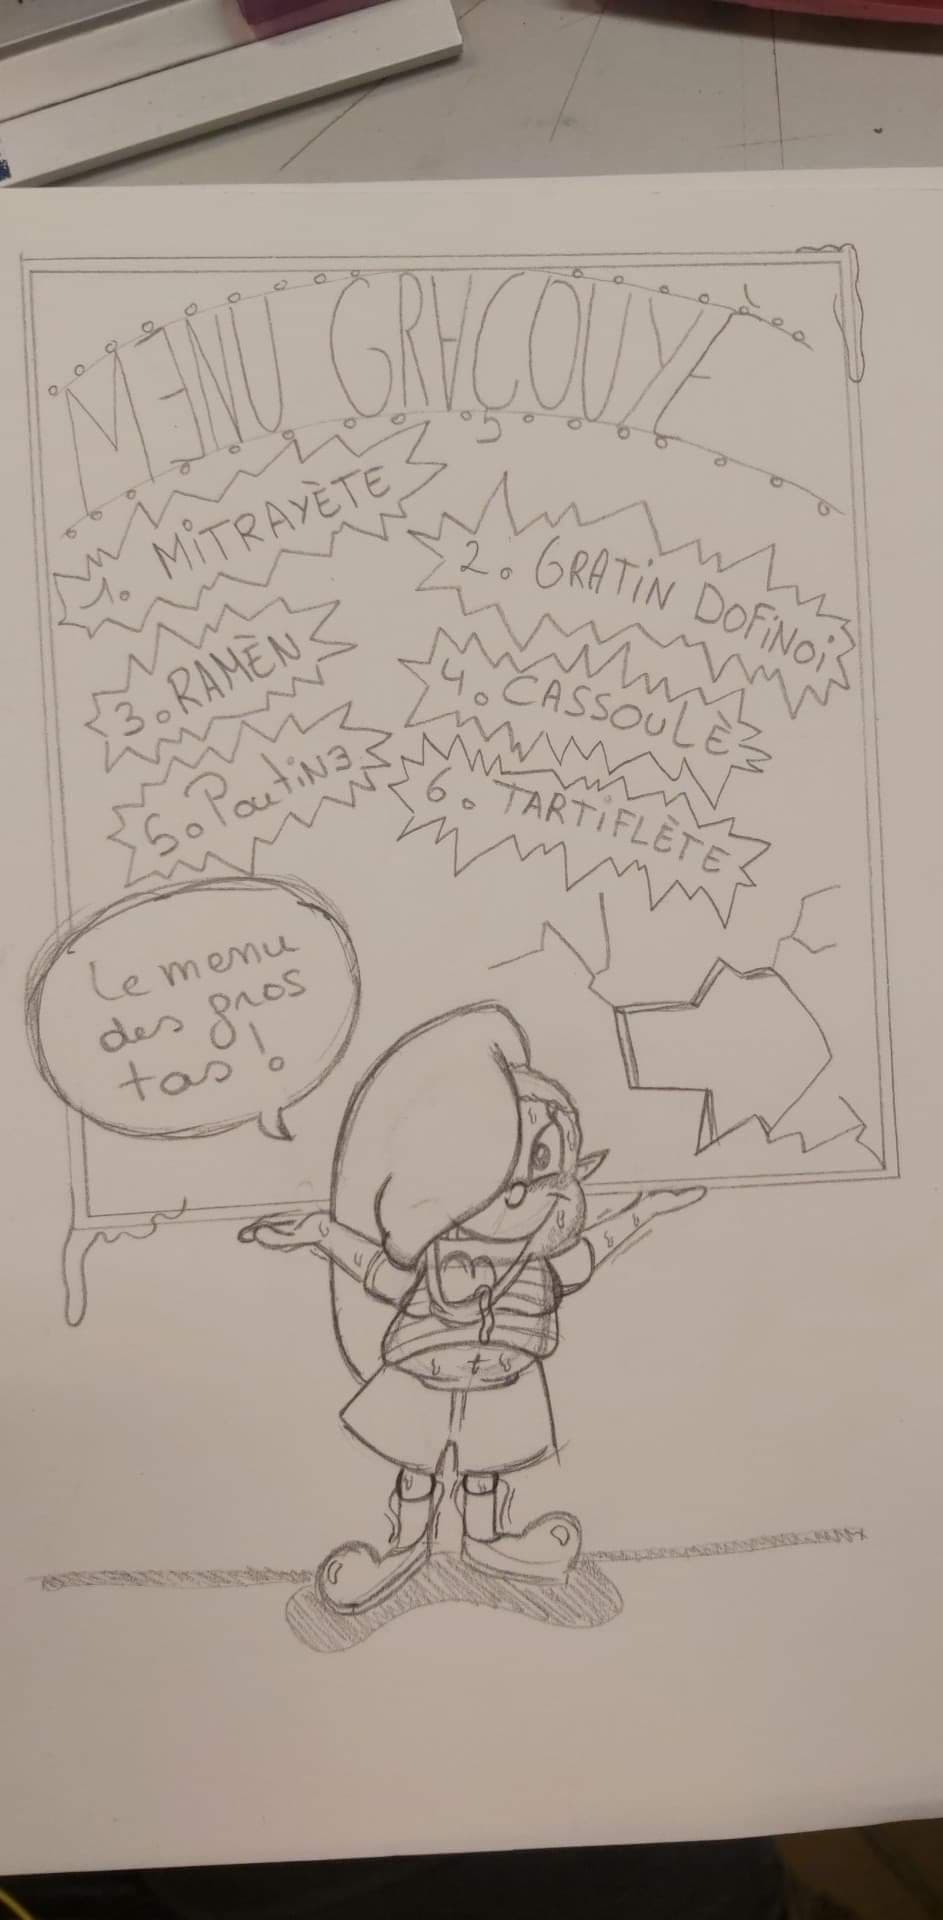 MENU GRAÇOUYÈ
1. MiTRAYÈTE
2. GRATiN DOFiNOi
3. RAMÈN
4. CASSOULÈ
5. Poutine
6. TARTiFLÈTE
Le menu
des gros
tas !